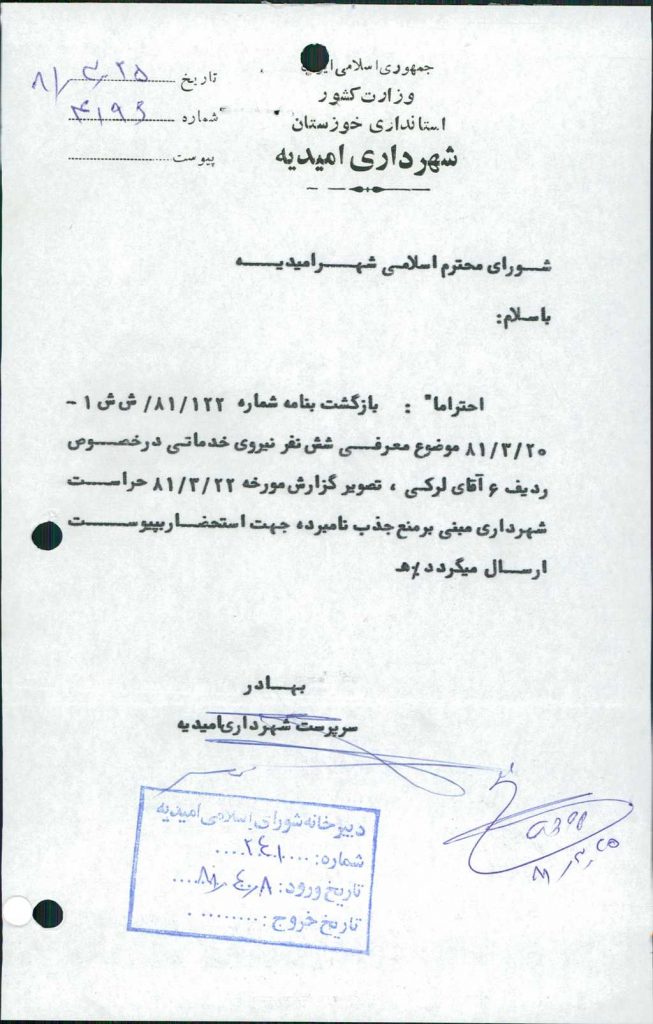 جمهوری اسلامی ایران
وزارت کشور
استانداری خوزستان
شهرداری امیدیه
تاریخ ۸۱/۳/۲۵
شماره ۴۱۹۶
پیوست
شورای محترم اسلامی شهر امیدیه
باسلام:
احتراما" : بازگشت بنامه شماره ۸۱/۱۲۲/ ش ش ۱ -
۸۱/۳/۲۰ موضوع معرفی شش نفر نیروی خدماتی درخصوص
ردیف ۶ آقای لرکی ، تصویر گزارش مورخه ۸۱/۳/۲۲ حراست
شهرداری مبنی بر منع جذب نامبرده جهت استحضار بپیوست
ارسال میگردد
بهادر
سرپرست شهرداری امیدیه
دبیرخانه شورای اسلامی امیدیه
شماره: ۲۴۱۰
تاریخ ورود: ۸۱/۴/۸
تاریخ خروج:
۸۱/۳/۲۵